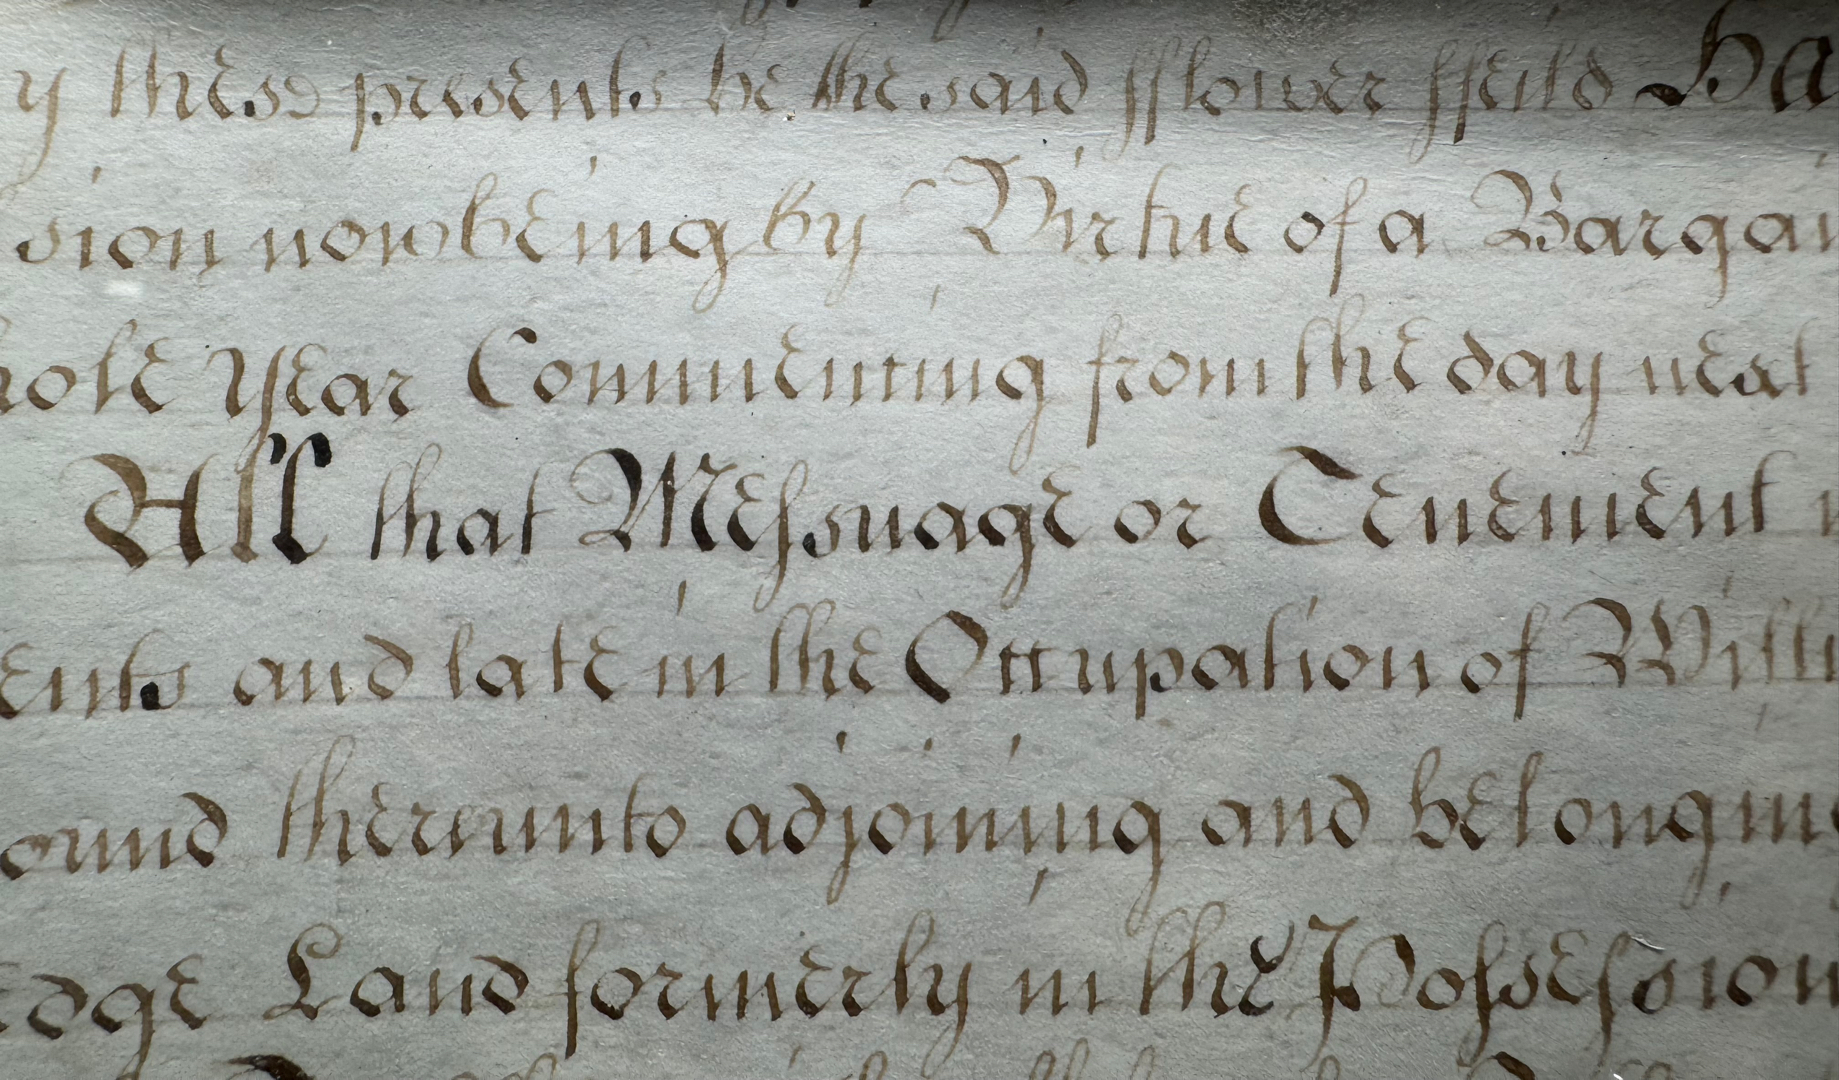 these presents he the said fflower ffeild Ha
sion now being by Virtue of a Bargai
hole Year Commencing from the day next
All that Messuage or Tenement
ents and late in the Occupation of Willi
ound thereunto adjoining and belonging
edge Land formerly in the Possession